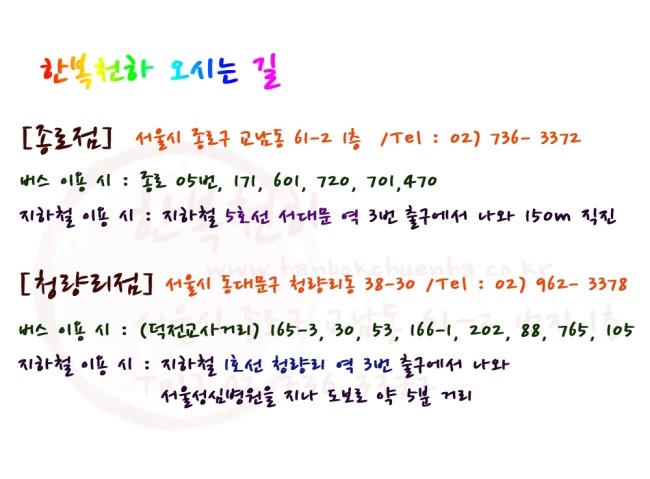 한복천하 오시는 길
[종로점] 서울시 종로구 교남동 61-2 1층 /Tel : 02) 736- 3372
버스 이용 시 : 종로 05번, 171, 601, 720, 701,470
지하철 이용 시 : 지하철 5호선 서대문 역 3번 출구에서 나와 150m 직진
한복천하
www.hanbokchuenha.co.kr
[청량리점] 서울시 동대문구 청량리동 38-30 /Tel : 02) 962- 3378
버스 이용 시 : (덕전교사거리) 165-3, 30, 53, 166-1, 202, 88, 765, 105
지하철 이용 시 : 지하철 1호선 청량리 역 3번 출구에서 나와
서울성심병원을 지나 도보로 약 5분 거리